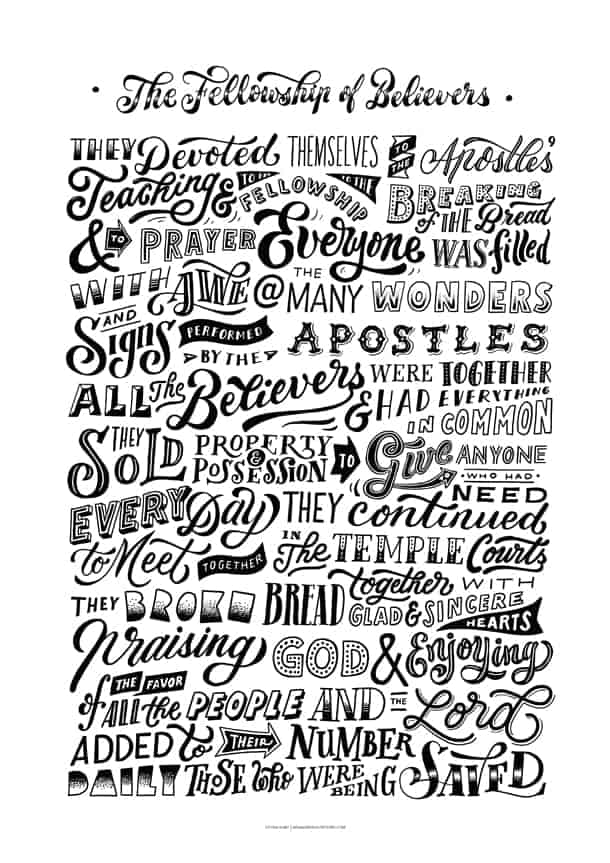 • The Fellowship of Believers •
THEY Devoted THEMSELVES TO THE Apostles'
Teaching & TO THE FELLOWSHIP TO THE BREAKING of THE Bread
& TO PRAYER Everyone WAS filled
WITH AWE @ THE MANY WONDERS
AND Signs PERFORMED BY THE APOSTLES
ALL The Believers WERE TOGETHER & HAD EVERYTHING IN COMMON
THEY SOLD PROPERTY & POSSESSION TO Give ANYONE WHO HAD NEED
EVERY Day THEY continued
to Meet TOGETHER IN The TEMPLE Courts
THEY BROKE BREAD together WITH GLAD & SINCERE HEARTS
Praising GOD & Enjoying
THE FAVOR of ALL the PEOPLE AND THE Lord
ADDED to THEIR NUMBER
DAILY THOSE who WERE BEING SAVED